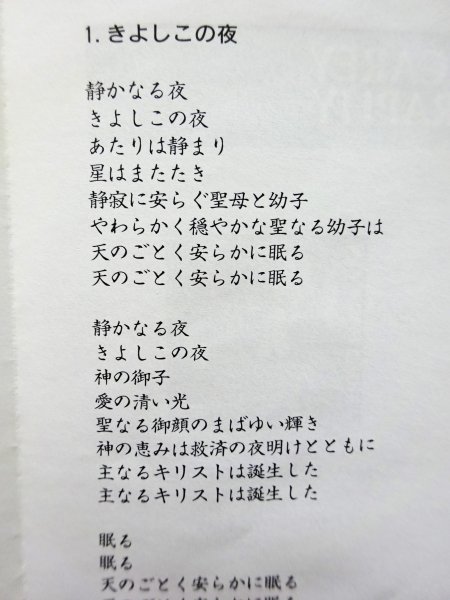 1. きよしこの夜
静かなる夜
きよしこの夜
あたりは静まり
星はまたたき
静寂に安らぐ聖母と幼子
やわらかく穏やかな聖なる幼子は
天のごとく安らかに眠る
天のごとく安らかに眠る
静かなる夜
きよしこの夜
神の御子
愛の清い光
聖なる御顔のまばゆい輝き
神の恵みは救済の夜明けとともに
主なるキリストは誕生した
主なるキリストは誕生した
眠る
眠る
天のごとく安らかに眠る